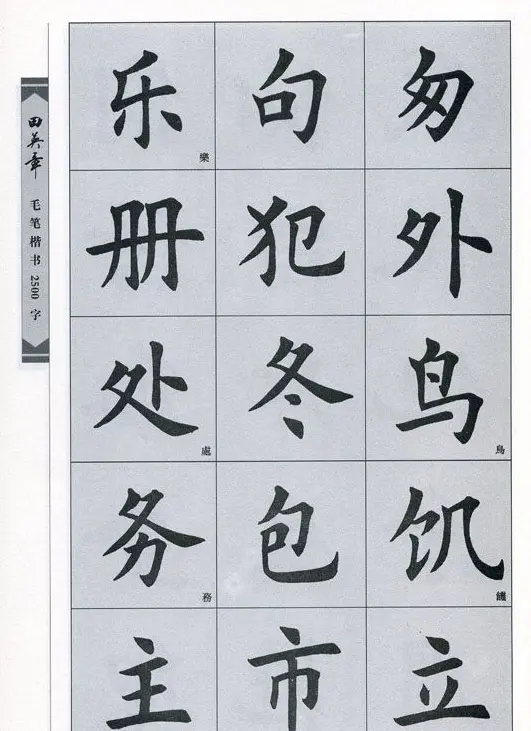 田英章 毛笔楷书 2500 字
乐 樂 句 匆
册 犯 外
处 處 冬 鸟 鳥
务 務 包 饥 饑
主 市 立